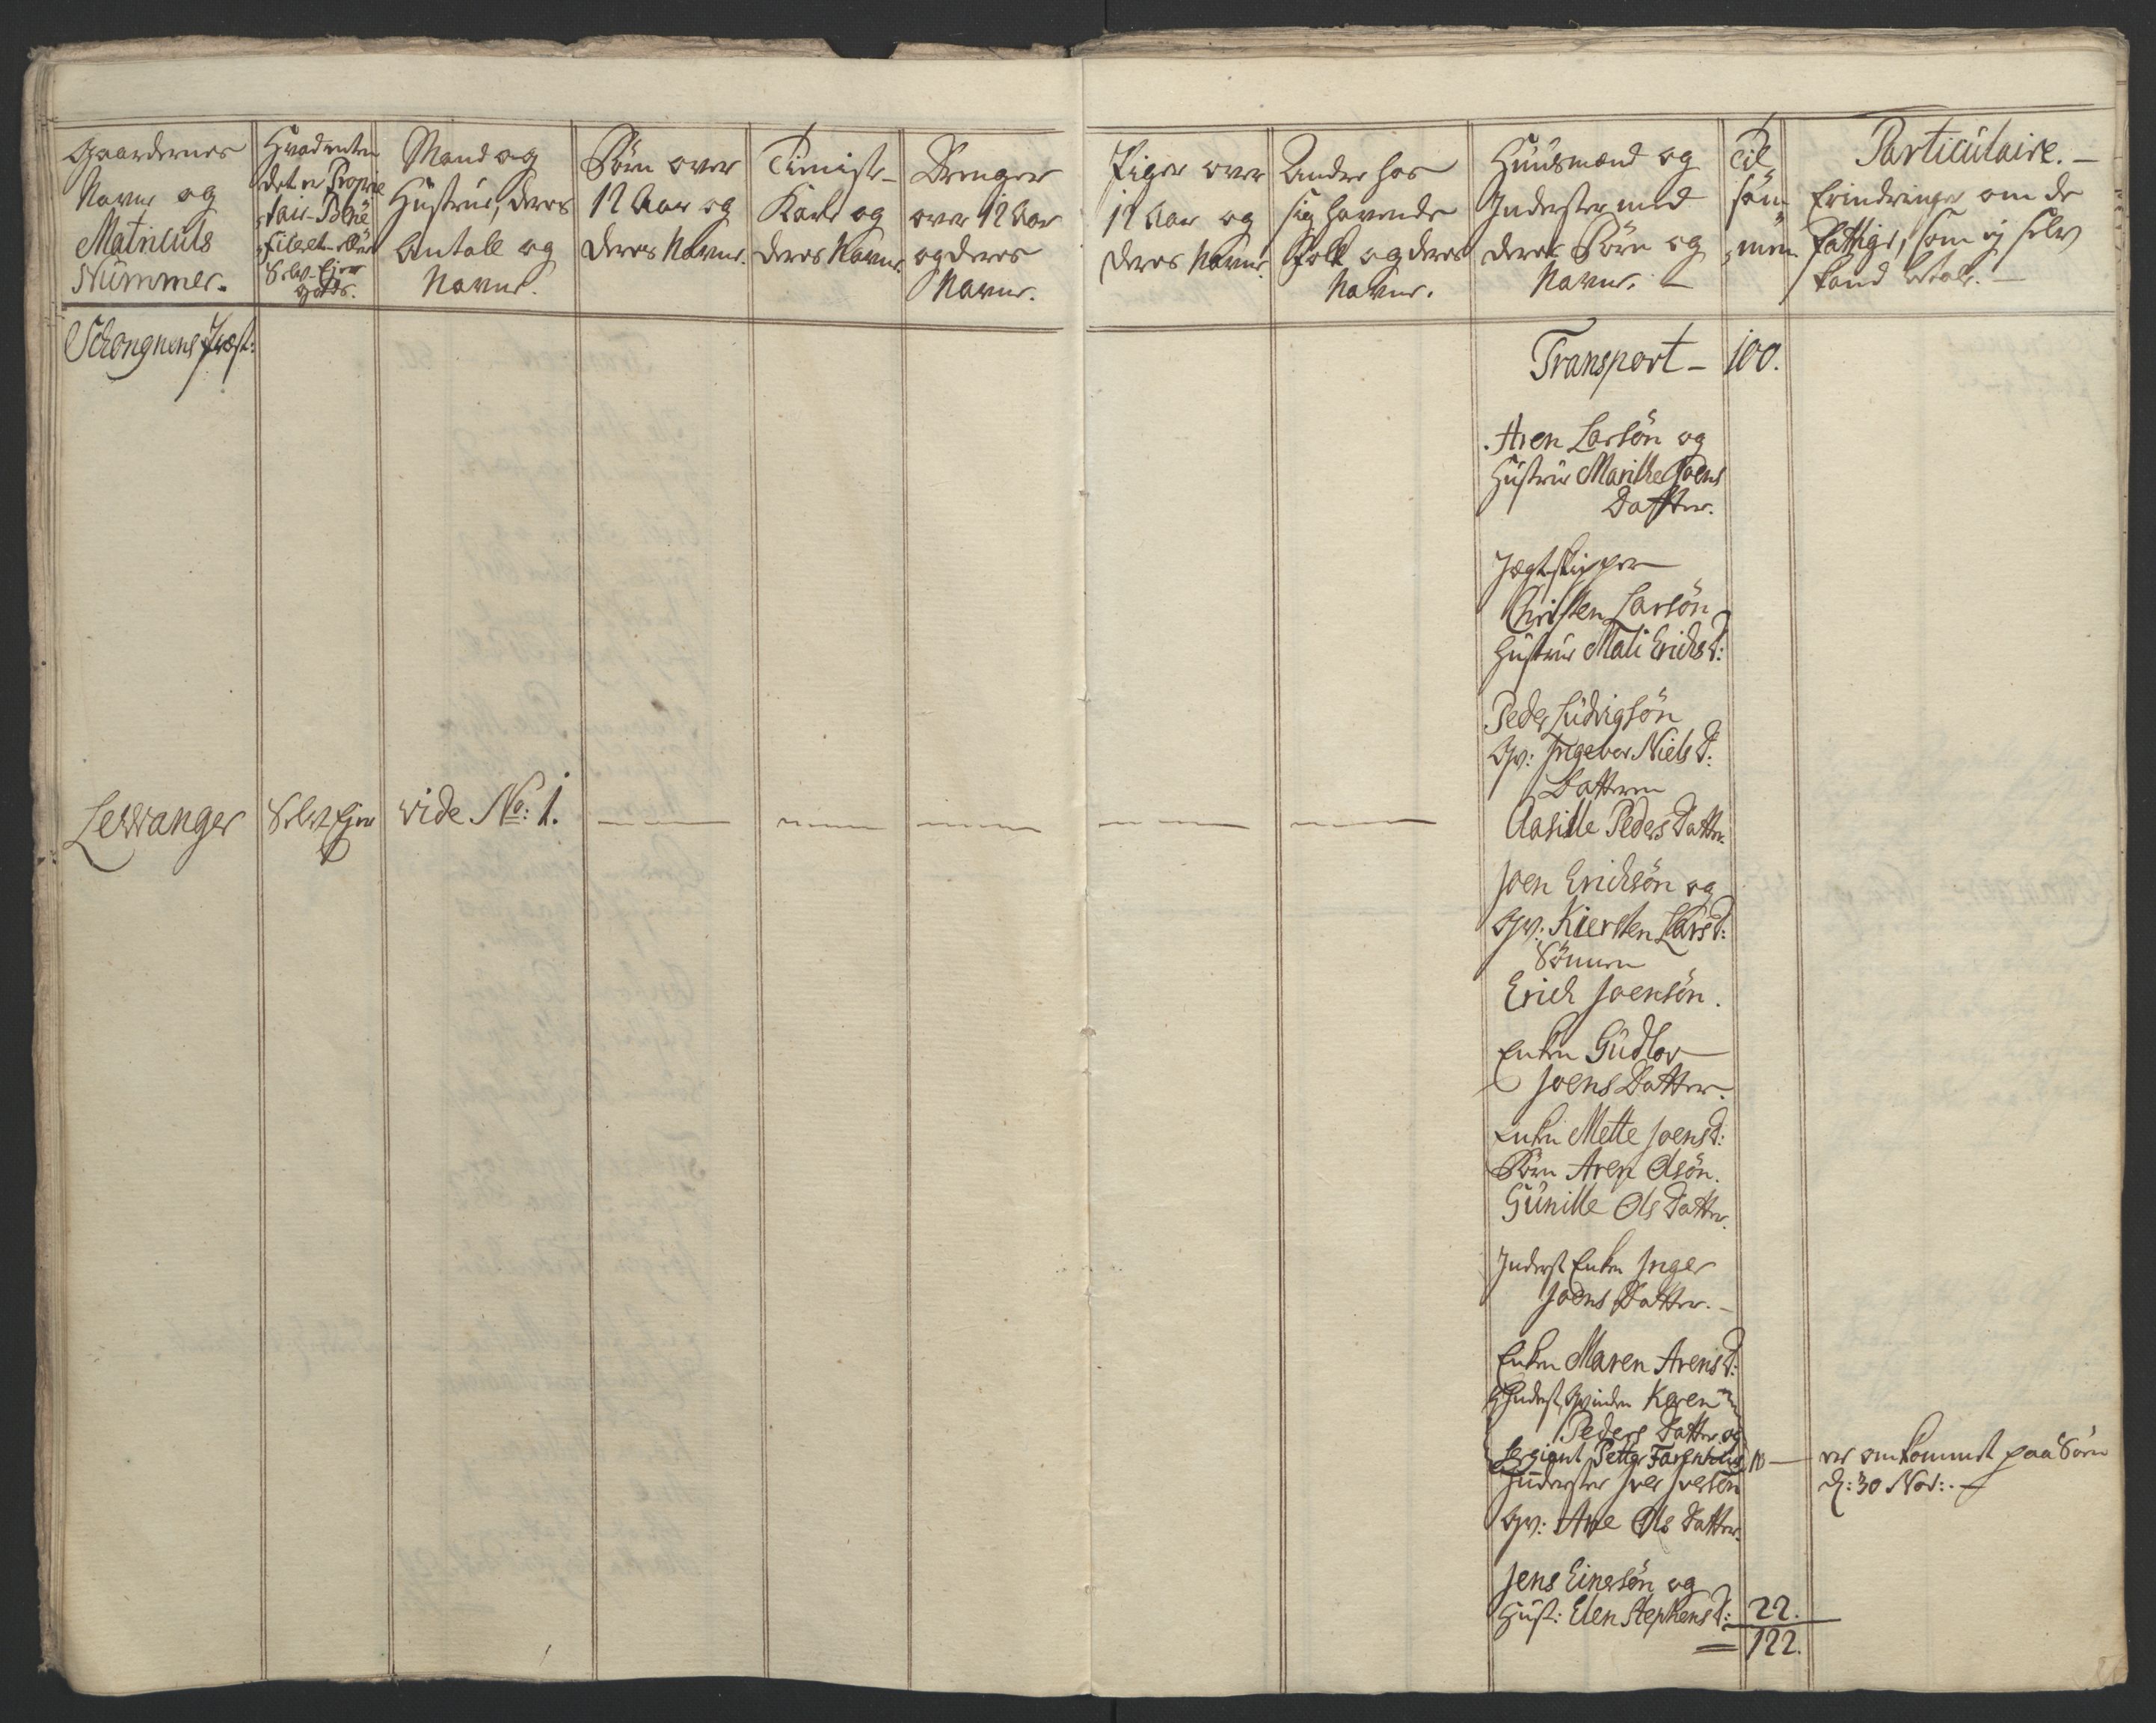 Gaardernes
Navne og
Matriculs
Nummer.
Hvad enten
det er Proprie
tair- Bene
ficeret- eller
Selv-Ejer
Gods.
Mand og
Hustrue, deres
Antall og
Navne.
Børn over
12 Aar og
deres Navne.
Tieniste-
Karle og
deres Navne.
Drenge
over 12 Aar
og deres
Navne.
Piger over
12 Aar og
deres Navne.
Andre hos
sig havende
Folk og deres
Navne.
Huusmænd og
Inderster med
deres Børn og
Navne.
Til
sam
men.
Particulaire.
Erindringer om de
Fattige, som ej selv
kand betale.
Schongnens Præst:
Transport - 100.
Aren Larsøn og
Hustrue Marithe Joens
Datter.
Jægtskipper
Christen Larsøn
Hustrue Mali Erichs D:
Peder Ludvigsøn
Qv: Ingebor Niels D:
Datteren
Lewanger Selv Ejer vide No: 1. Aasille Peders Datter
Joen Erichsøn og
Qv: Kiersten Lars D:
Sønnen
Erich Joensøn.
Enken Gudlov
Joens Datter.
Enken Mette Joens D:
Børn Aren Olsøn.
Gunille Ols Datter.
Inderst Enken Inger
Joens Datter.
Enken Maren Arens D:
Inderst Qvinden Karen
Peders Datter og
Sergiant Petter Farenhous — er omkommet paa Søen
Inderster Iver Iversøn d: 30 Nov:
Qv: Ane Ols Datter.
Jens Einersøn og
Hust: Elen Stephens D: 22.
122.